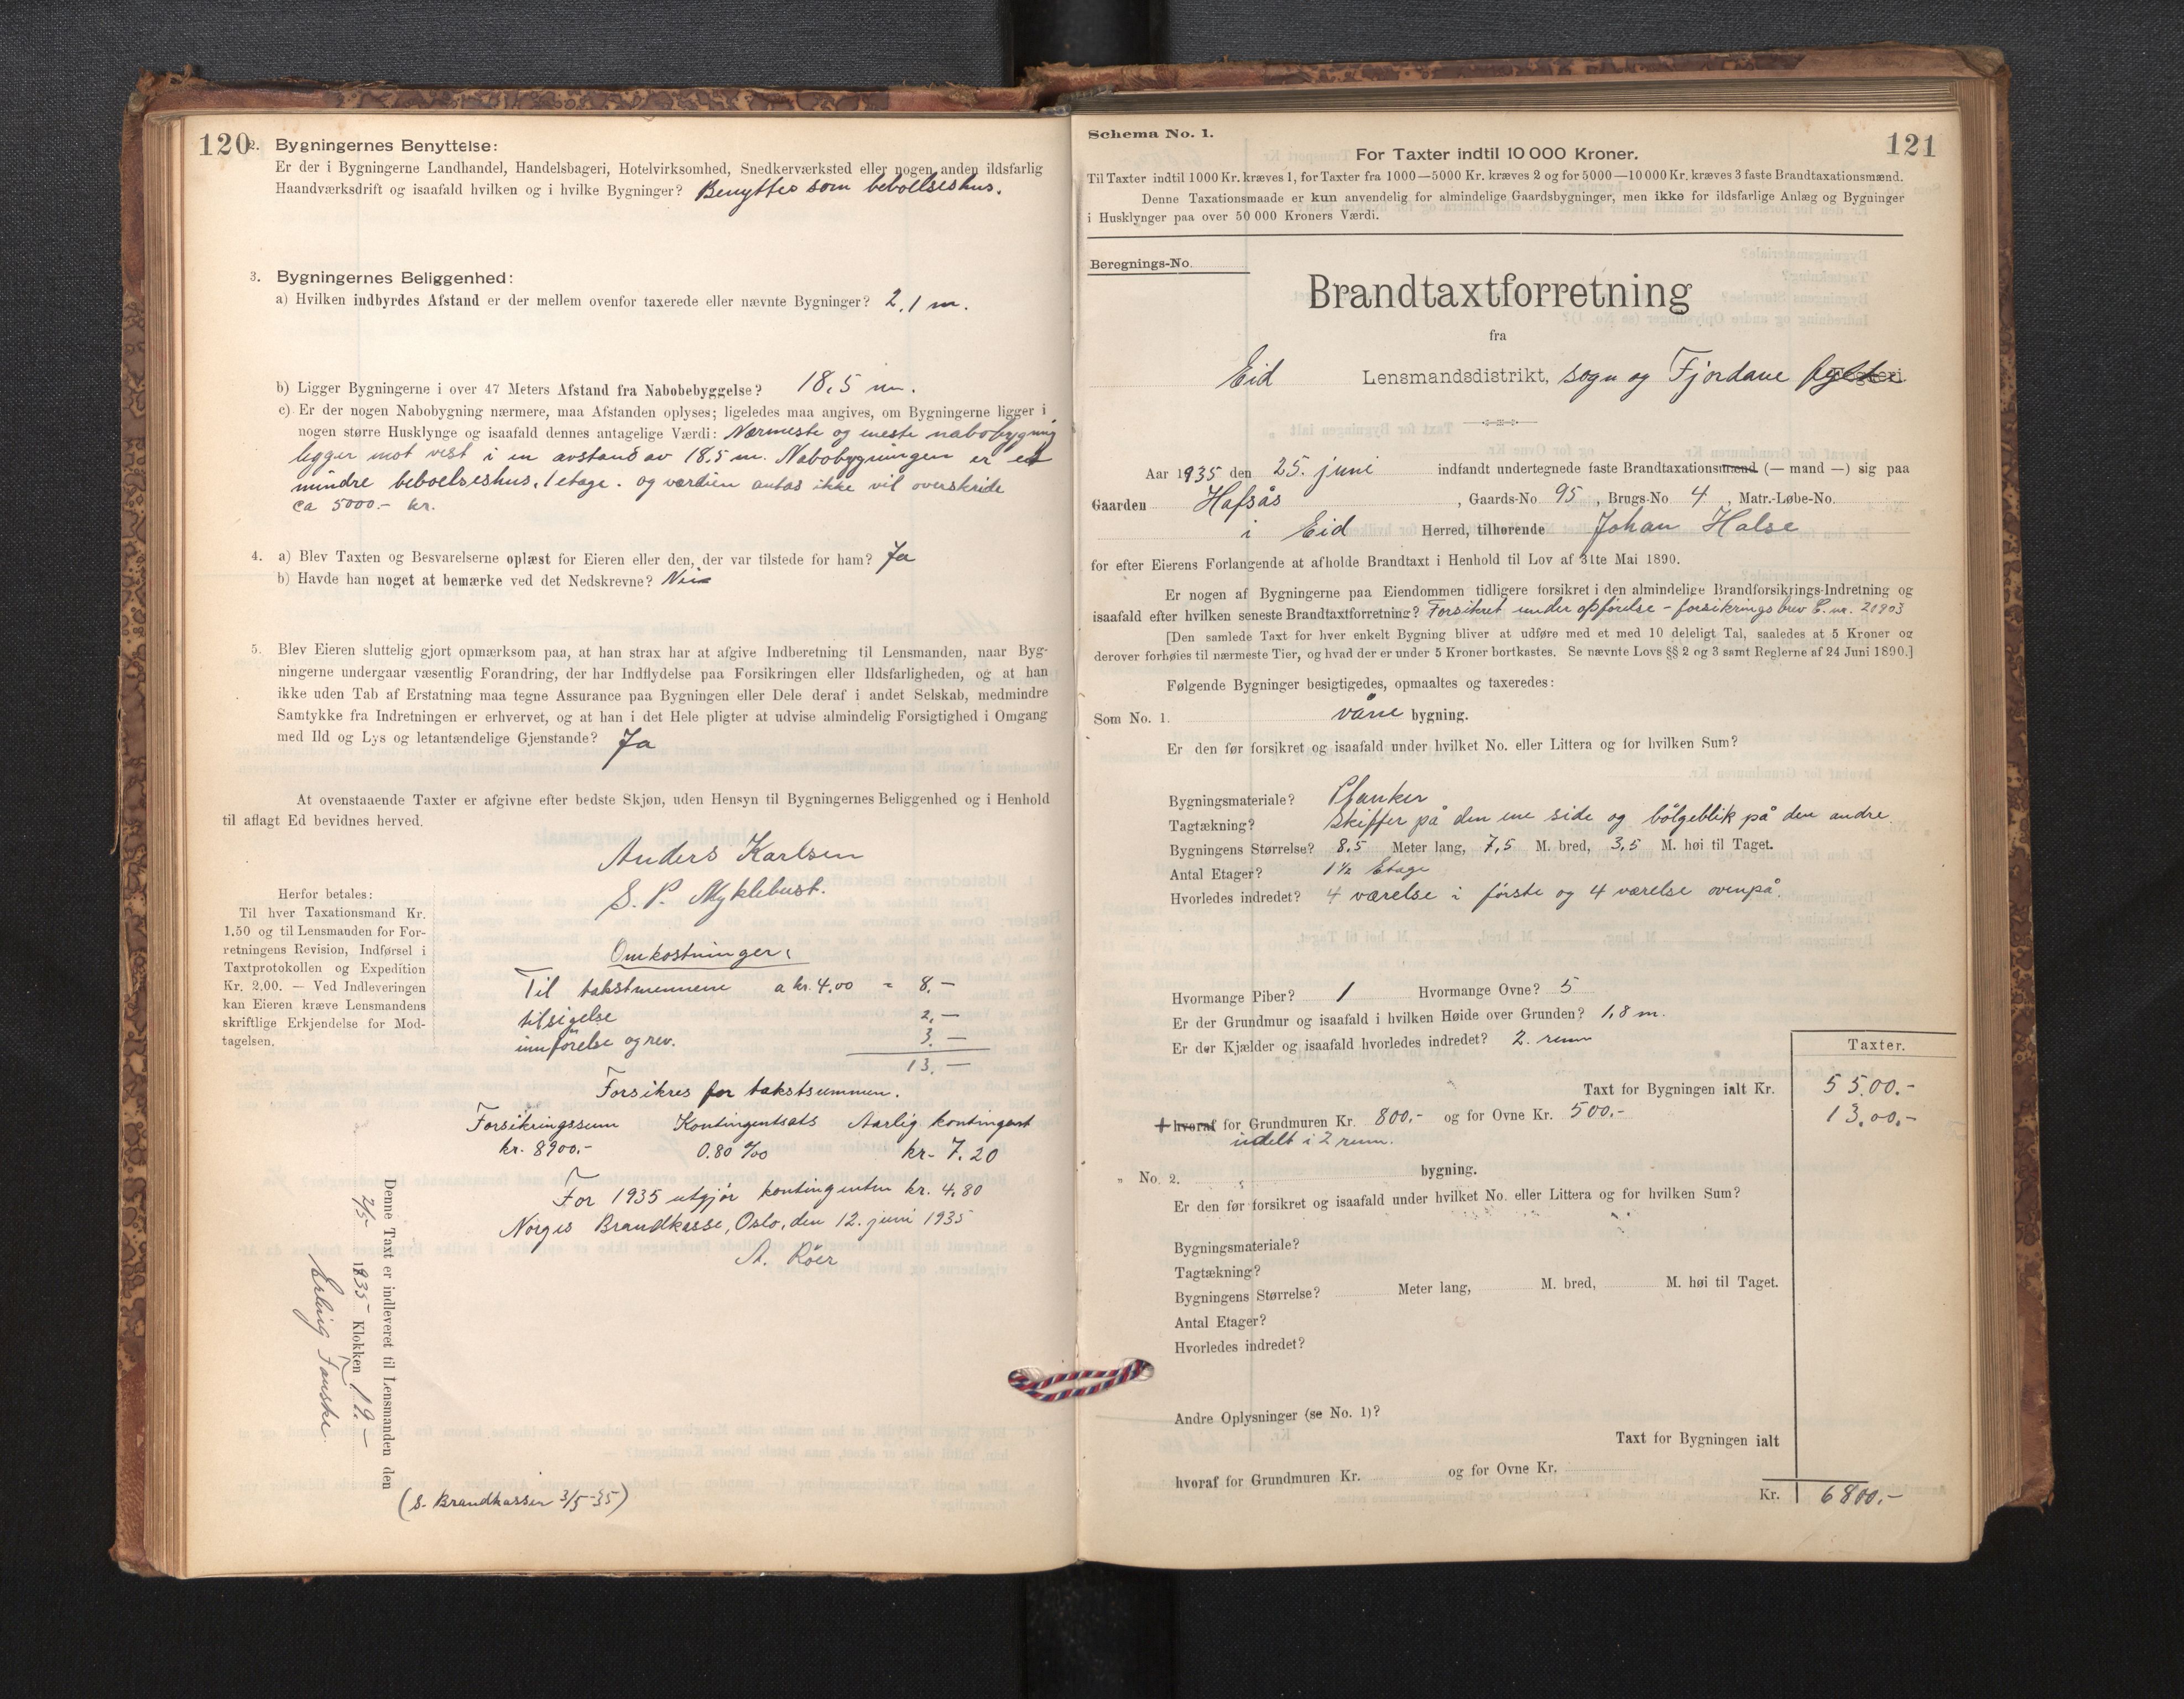 120
2. Bygningernes Benyttelse:
Er der i Bygningerne Landhandel, Handelsbageri, Hotelvirksomhed, Snedkerværksted eller nogen anden ildsfarlig
Haandværksdrift og isaafald hvilken og i hvilke Bygninger? Benyttes som beboelseshus.
3. Bygningernes Beliggenhed:
a) Hvilken indbyrdes Afstand er der mellem ovenfor taxerede eller nævnte Bygninger? 2,1 m.
b) Ligger Bygningerne i over 47 Meters Afstand fra Nabobebyggelse? 18,5 m.
c) Er der nogen Nabobygning nærmere, maa Afstanden oplyses; ligeledes maa angives, om Bygningerne ligger i
nogen større Husklynge og isaafald dennes antagelige Værdi: Nærmeste og eneste nabobygning
ligger mot vest i en avstand av 18,5 m. Nabobygningen er et
mindre beboelseshus, 1 etage. og værdien antas ikke vil overskride
ca 5000.- kr.
4. a) Blev Taxten og Besvarelserne oplæst for Eieren eller den, der var tilstede for ham? Ja
b) Havde han noget at bemærke ved det Nedskrevne? Nei
5. Blev Eieren sluttelig gjort opmærksom paa, at han strax har at afgive Indberetning til Lensmanden, naar Byg-
ningerne undergaar væsentlig Forandring, der har Indflydelse paa Forsikringen eller Ildsfarligheden, og at han
ikke uden Tab af Erstatning maa tegne Assurance paa Bygningen eller Dele deraf i andet Selskab, medmindre
Samtykke fra Indretningen er erhvervet, og at han i det Hele pligter at udvise almindelig Forsigtighed i Omgang
med Ild og Lys og letantændelige Gjenstande? Ja
At ovenstaaende Taxter er afgivne efter bedste Skjøn, uden Hensyn til Bygningernes Beliggenhed og i Henhold
til aflagt Ed bevidnes herved.
Anders Karlsen
S. P. Myklebust.
Herfor betales:
Til hver Taxationsmand Kr.
1.50 og til Lensmanden for For-
retningens Revision, Indførsel i
Taxtprotokollen og Expedition
Kr. 2.00. — Ved Indleveringen
kan Eieren kræve Lensmandens
skriftlige Erkjendelse for Mod-
tagelsen.
Omkostninger:
Til takstmennene a kr. 4.00 = 8.—
tilsigelse 2.—
innførelse og rev. 3.—
13.—
Forsikres for takstsummen.
Forsikringssum Kontingentsats Aarlig kontingent
kr. 8900.- 0.80 ‰ kr. 7.20
For 1935 utgjør kontingenten kr. 4.80
Norges Brandkasse, Oslo, den 12. juni 1935
A. Röer
Denne Taxt er indleveret til Lensmanden den
2/5 1935 Klokken 12.—
Erling Fauske.
(s. Brandkassen 3/5-35)
121
Schema No. 1.
For Taxter indtil 10 000 Kroner.
Til Taxter indtil 1000 Kr. kræves 1, for Taxter fra 1000—5000 Kr. kræves 2 og for 5000—10 000 Kr. kræves 3 faste Brandtaxationsmænd.
Denne Taxationsmaade er kun anvendelig for almindelige Gaardsbygninger, men ikke for ildsfarlige Anlæg og Bygninger
i Husklynger paa over 50 000 Kroners Værdi.
Beregnings-No.
Brandtaxtforretning
fra
Eid Lensmandsdistrikt, Sogn og Fjordane fylke Fogderi
Aar 1935 den 25. juni indfandt undertegnede faste Brandtaxationsmænd (— mand —) sig paa
Gaarden Hafsås, Gaards-No 95, Brugs-No 4, Matr.-Løbe-No.
i Eid Herred, tilhørende Johan Halse
for efter Eierens Forlangende at afholde Brandtaxt i Henhold til Lov af 31te Mai 1890.
Er nogen af Bygningerne paa Eiendommen tidligere forsikret i den almindelige Brandforsikrings-Indretning og
isaafald efter hvilken seneste Brandtaxtforretning? Forsikret under opførelse - forsikringsbrev C. nr. 21903
[Den samlede Taxt for hver enkelt Bygning bliver at udføre med et med 10 deleligt Tal, saaledes at 5 Kroner og
derover forhøies til nærmeste Tier, og hvad der er under 5 Kroner bortkastes. Se nævnte Lovs §§ 2 og 3 samt Reglerne af 24 Juni 1890.]
Følgende Bygninger besigtigedes, opmaaltes og taxeredes:
Som No. 1. våne bygning.
Er den før forsikret og isaafald under hvilket No. eller Littera og for hvilken Sum?
Bygningsmateriale? Planker
Tagtækning? Skiffer på den ene side og bölgeblik på den andre.
Bygningens Størrelse? 8,5 Meter lang, 7,5 M. bred, 3,5 M. høi til Taget.
Antal Etager? 1½ Etage
Hvorledes indredet? 4 værelse i første og 4 værelse ovenpå.
Hvormange Piber? 1 Hvormange Ovne? 5
Er der Grundmur og isaafald i hvilken Høide over Grunden? 1,8 m.
Er der Kjælder og isaafald hvorledes indredet? 2. rum
Taxter.
Taxt for Bygningen ialt Kr. 5500.-
+ hvoraf for Grundmuren Kr. 800.- og for Ovne Kr. 500.- 1300.-
indelt i 2 rum.
„ No. 2. bygning.
Er den før forsikret og isaafald under hvilket No. eller Littera og for hvilken Sum?
Bygningsmateriale?
Tagtækning?
Bygningens Størrelse? Meter lang, M. bred, M. høi til Taget.
Antal Etager?
Hvorledes indredet?
Andre Oplysninger (se No. 1)?
Taxt for Bygningen ialt
hvoraf for Grundmuren Kr. og for Ovne Kr.
Kr. 6800.-